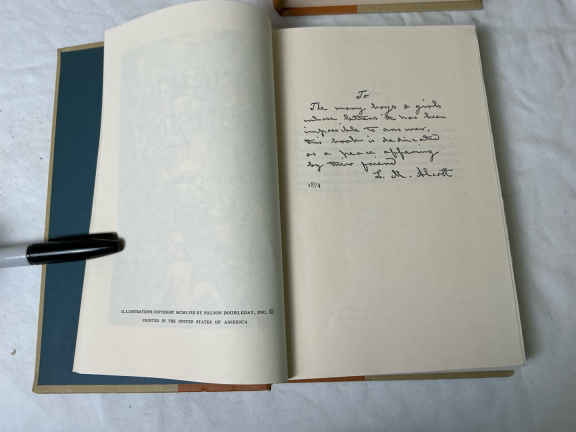 ILLUSTRATIONS COPYRIGHT MCMLVIII BY NELSON DOUBLEDAY, INC.
PRINTED IN THE UNITED STATES OF AMERICA
To
The many boys & girls
whose letters it has been
impossible to answer,
this book is dedicated
as a peace offering
by their friend
L. M. Alcott
1874